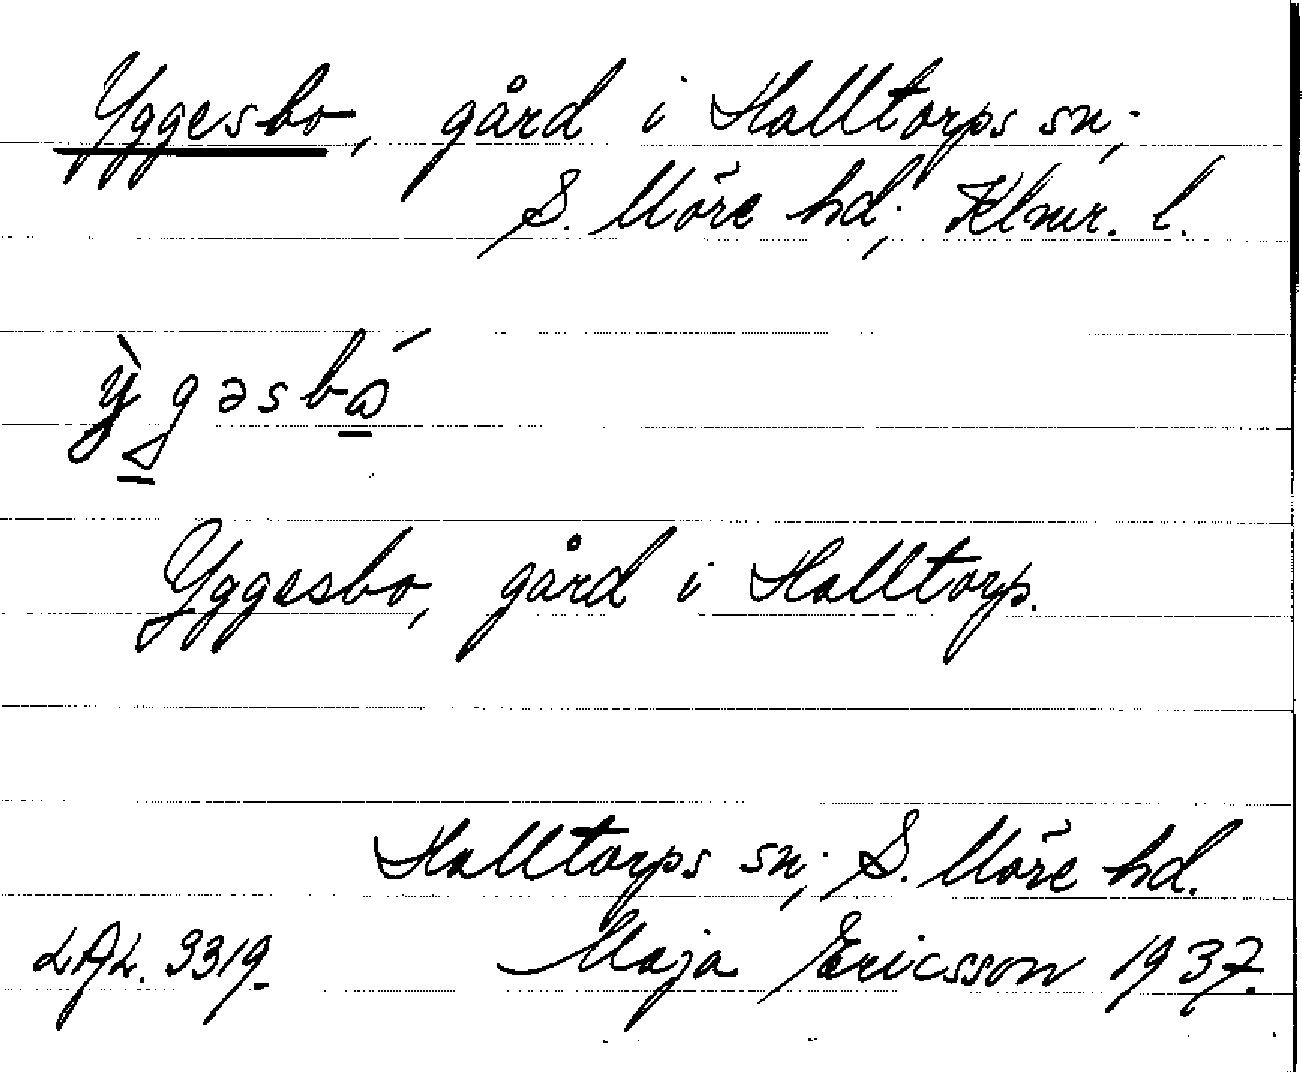 Yggesbo, gård i Halltorps sn;
S. Möre hd; Klmr. l.
Yggesbo, gård i Halltorp.
Halltorps sn; S. Möre hd.
LAL. 3319. Maja Ericsson 1937.